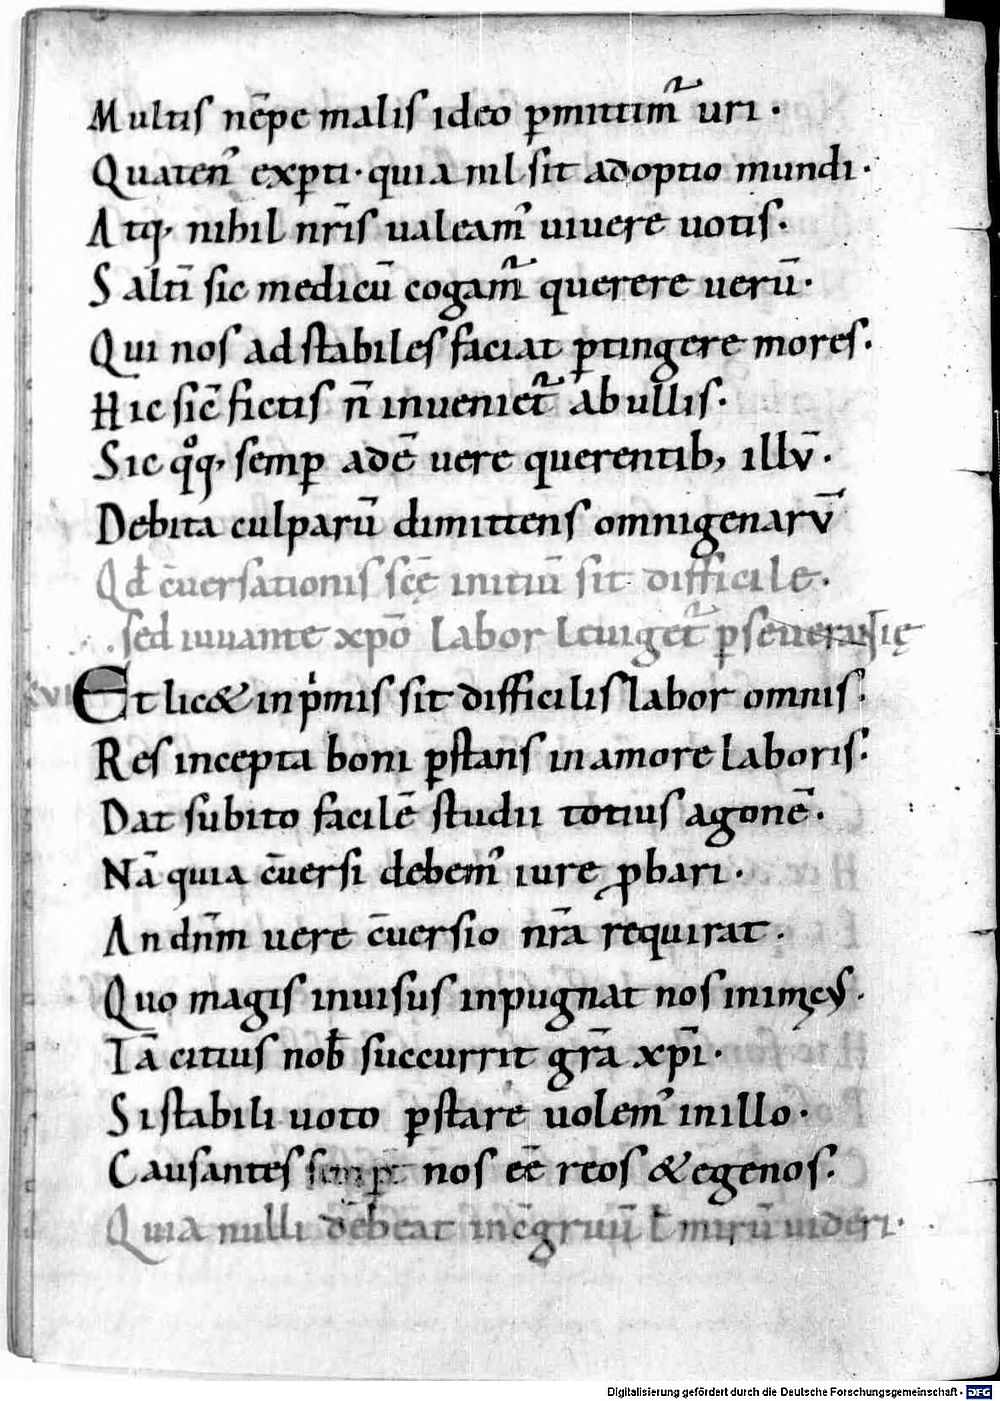 Multiſ nēpe maliſ ideo ꝑmittimꝰ uri ·
Quatenꝰ exꝑti · quia nil ſit adoptio mundi ·
Atq, nihil nr̄iſ ualeamꝰ uiuere uotiſ ·
Saltī ſic medicū cogamꝰ querere uerū ·
Qui noſ ad ſtabileſ faciat ꝑtingere moreſ .
Hic ſic̄ fictiſ n̄ inueniet᷑ ab ulliſ ·
Sic qͦq, ſemꝑ adē uere querentib, illv̄ ·
Debita culparū dimittenſ omnigenarv̄
Qd̄ c̄uerſationiſ ſcę̄ initiū ſit difficile .
ſed iuuante xp̄o labor leuiget᷑ ꝑſeuerāſię
XVI Et lic& in pͥmiſ ſit difficiliſ labor omniſ :
Reſ incepta boni ꝑſtanſ in amore laboriſ :
Dat ſubito facilē ſtudii totiuſ agonē .
Nā quia c̄uerſi debemꝰ iure ꝓbari ·
An dn̄m uere c̄uerſio nr̄a requirat ·
Quo magiſ inuiſuſ inpugnat noſ inimic᷒ ·
Tā citiuſ nob̄ ſuccurrit gr̄a xp̄i ·
Si ſtabili uoto ꝑſtare uolemꝰ in illo ·
Cauſanteſ ſemꝑ noſ eē reoſ & egenoſ :
Quia nulli debeat inc̄gruū ł mirū uideri ·
Digitalisierung gefördert durch die Deutsche Forschungsgemeinschaft - DFG